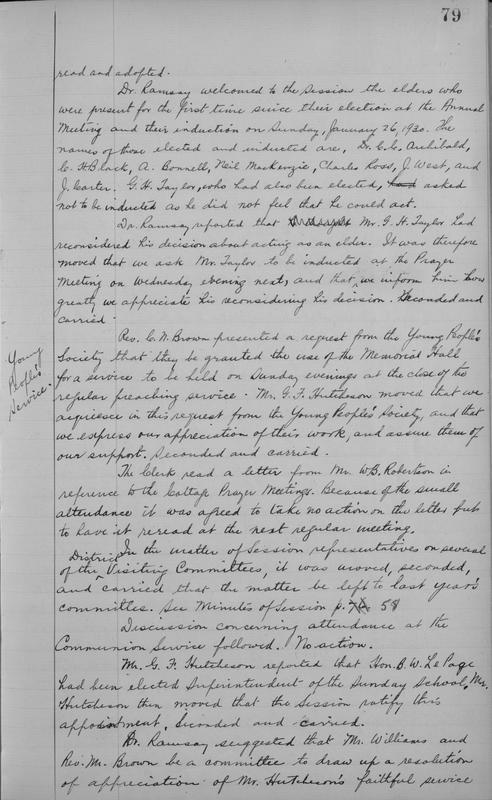 79
read and adopted.
Dr. Ramsay welcomed to the Session the elders who
were present for the first time since their election at the Annual
Meeting and their induction on Sunday, January 26, 1930. The
names of those elected and inducted are, Dr. C.C. Archibald,
C. H. Black, A. Bonnell, Neil MacKenzie, Charles Ross, J. West, and
J. Carter. G. H. Taylor, who had also been elected, had asked
not to be inducted as he did not feel that he could act.
Dr. Ramsay reported that Mr. G. H. Taylor had
reconsidered his decision about acting as an elder. It was therefore
moved that we ask Mr. Taylor to be inducted at the Prayer
Meeting on Wednesday evening next, and that we inform him how
greatly we appreciate his reconsidering his decision. Seconded and
carried.
Young
People's
Service.
Rev. C. W. Brown presented a request from the Young People's
Society that they be granted the use of the Memorial Hall
for a service to be held on Sunday evenings at the close of the
regular preaching service. Mr. G. F. Hutcheson moved that we
acquiesce in this request from the Young People's Society, and that
we express our appreciation of their work, and assure them of
our support. Seconded and carried.
The Clerk read a letter from Mr. W.B. Robertson in
reference to the Cottage Prayer Meetings. Because of the small
attendance it was agreed to take no action on the letter but
to have it reread at the next regular meeting.
In the matter of Session representatives on several
of the District Visiting Committees, it was moved, seconded,
and carried that the matter be left to last year's
committee. See Minutes of Session p. 58
Discussion concerning attendance at the
Communion Service followed. No action.
Mr. G. F. Hutcheson reported that Hon. B. W. LePage
had been elected Superintendent of the Sunday School. Mr.
Hutcheson then moved that the Session ratify this
appointment. Seconded and carried.
Dr. Ramsay suggested that Mr. Williams and
Rev. Mr. Brown be a committee to draw up a resolution
of appreciation of Mr. Hutcheson's faithful service